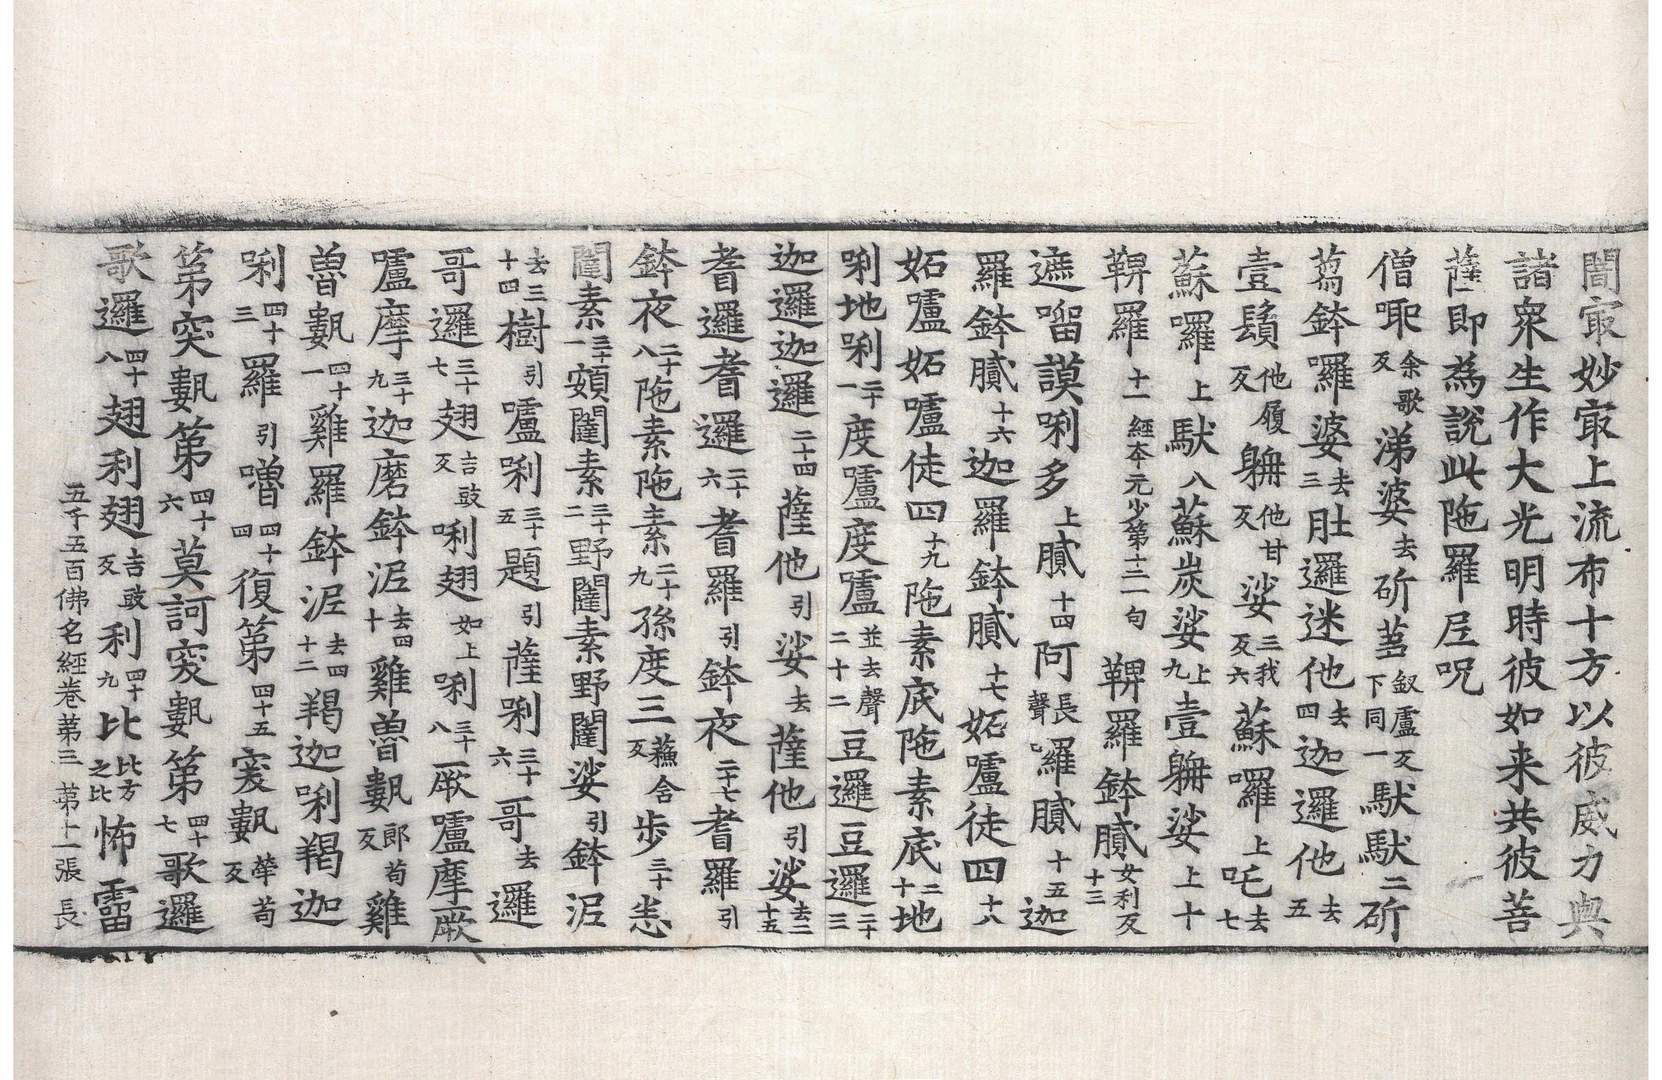 闍㝡妙㝡上流布十方以彼威力與
諸衆生作大光明時彼如来共彼菩
薩即為說此陁羅𡰱呪
僧㖶余歌反涕婆去斫蒭釵盧反下同一䭾䭾二斫
蒭鉢囉婆去三肚邏迷他去四迦邏他去五
壹鬚他履反䠸他甘反娑三我反六蘇囉上吒去七
蘇囉上䭾八蘇炭娑上九壹䠸娑上十
鞞羅十一經夲元少第十二一句鞞羅鉢膩女利反十三
遮㗰謨唎多上膩十四阿長聲羅膩十五迦
羅鉢膩十六迦羅鉢膩十七妬嚧徒四十八
妬嚧妬嚧徒四十九陁素底陁素底二十地
唎地唎二十一度嚧度嚧並去聲二十二豆邏豆邏二十三
迦邏迦邏二十四薩他引娑去薩他引娑去二十五
耆邏耆邏二十六耆羅引鉢夜二十七耆羅引
鉢夜二十八陁素陁素二十九孫度三蘓含反步三十恙
闥素三十一頞闥素三十二野闥素野闥娑引鉢泥
去三十四樹引嚧唎三十五題引薩唎三十六哥去邏
哥邏三十七翅吉豉反唎翅如上唎三十八厰嚧摩厰
嚧摩三十九迦磨鉢泥去四十雞魯㼭郎苟反雞
魯㼭四十一雞羅鉢泥去四十二羯迦唎羯迦
唎四十三羅引噌四十四復第四十五寞㼭犖苟反
第突㼭第四十六莫訶突㼭第四十七歌邏
歌邏四十八翅利翅吉豉反利四十九比比方之比怖雷
五千五百佛名經卷第三　第十一張　長